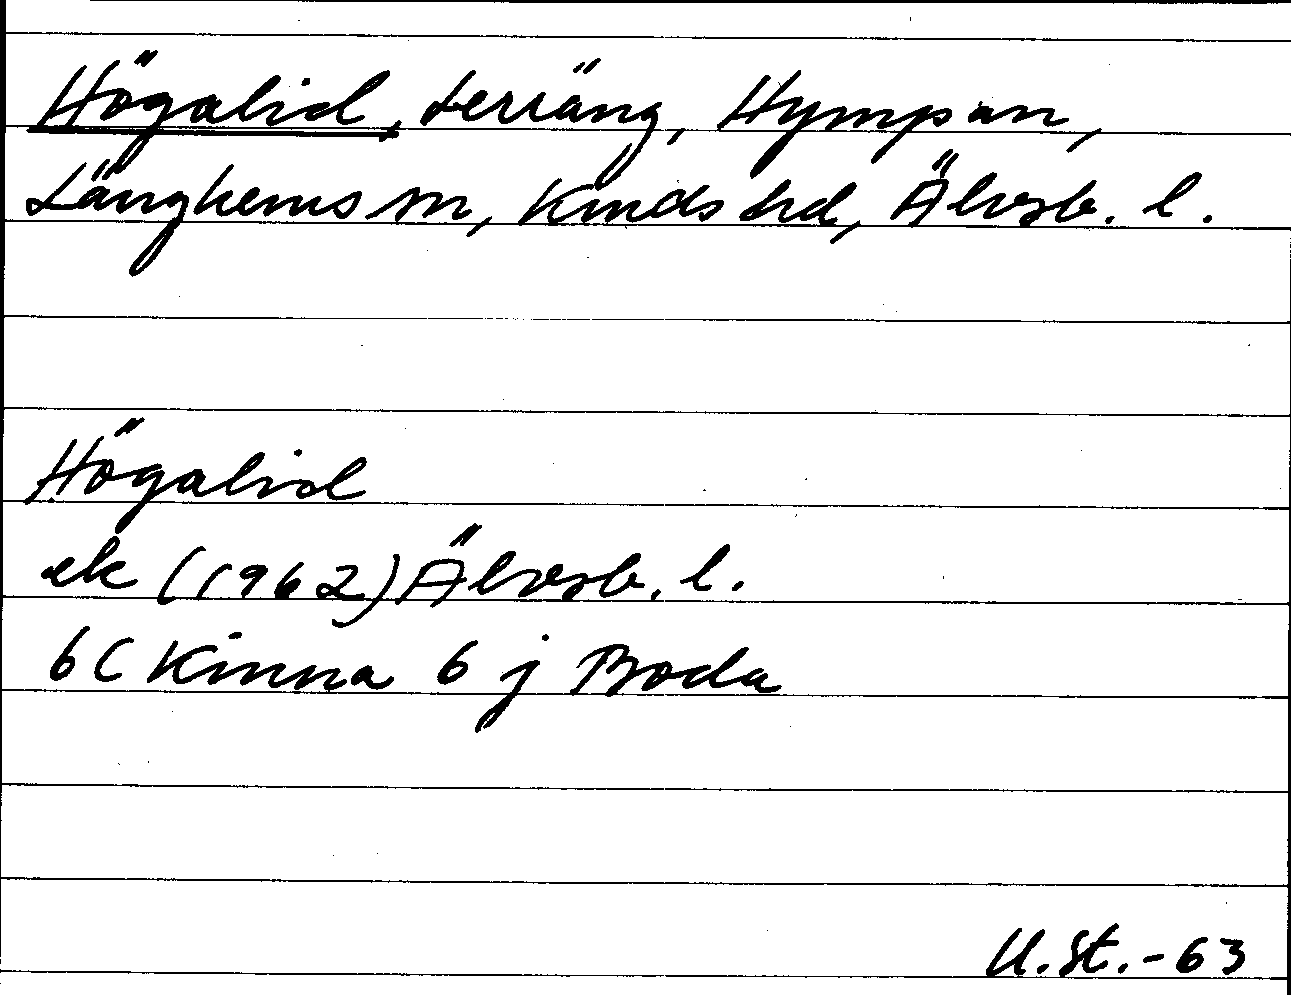 Högalid, terräng, Hympan,
Länghems sn, Kinds hd, Älvsb. l.
Högalid
ek (1962) Älvsb. l.
6C Kinna 6 j Boda
U. St. -63